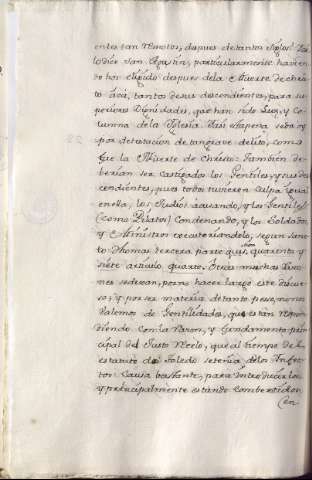 entes tan remotos, despues de tantos siglos! Sal-
lo dize San Agustin, particularmente havien-
do hoy eligido despues dela Muerte de Chris-
to acá, tantos de sus descendientes, para su-
periores Dignidades, que han sido Luz, y Co-
lumna de la Yglesia. Mas la pena seria
por detestacion de tan grave delito, como
fue la Muerte de Christo; tambien de-
berian ser castigados los Gentiles, y sus des-
cendientes, pues todos tuvieron culpa igual
en ella, los Judios acusando, y los Gentiles
(como Pilatos) Condenando, y los Soldados,
y Ministros executandolo, segun San-
to Thomas tercera parte quest. quarenta y
siete articulo quarto. Otras muchas razo-
nes se dexan, por no hacer largo este discur-
so, y por ser materia de tanto peso, no nos
valemos de Gentiledades, que están respon-
diendo con la Razon, y fundamento prin-
cipal del Justo Recelo, que al tiempo del
estatuto de Toledo se tenia delos Infec-
tos Causa bastante, para introducirlo,
y principalmente estando
(en